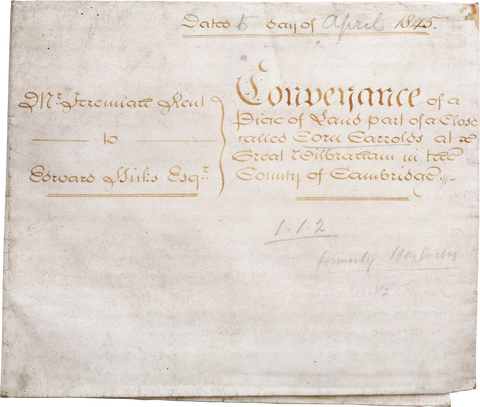 Dated 5 day of April 1845.
Mr. Jeremiah Kent
to
Edward Hicks Esqr.
Conveyance of a
Piece of Land part of a Close
called Corn Carrolds at
Great Wilbraham in the
County of Cambridge
1.1.2
formerly